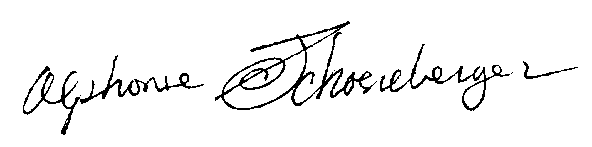 Alphonse Schoeneberger